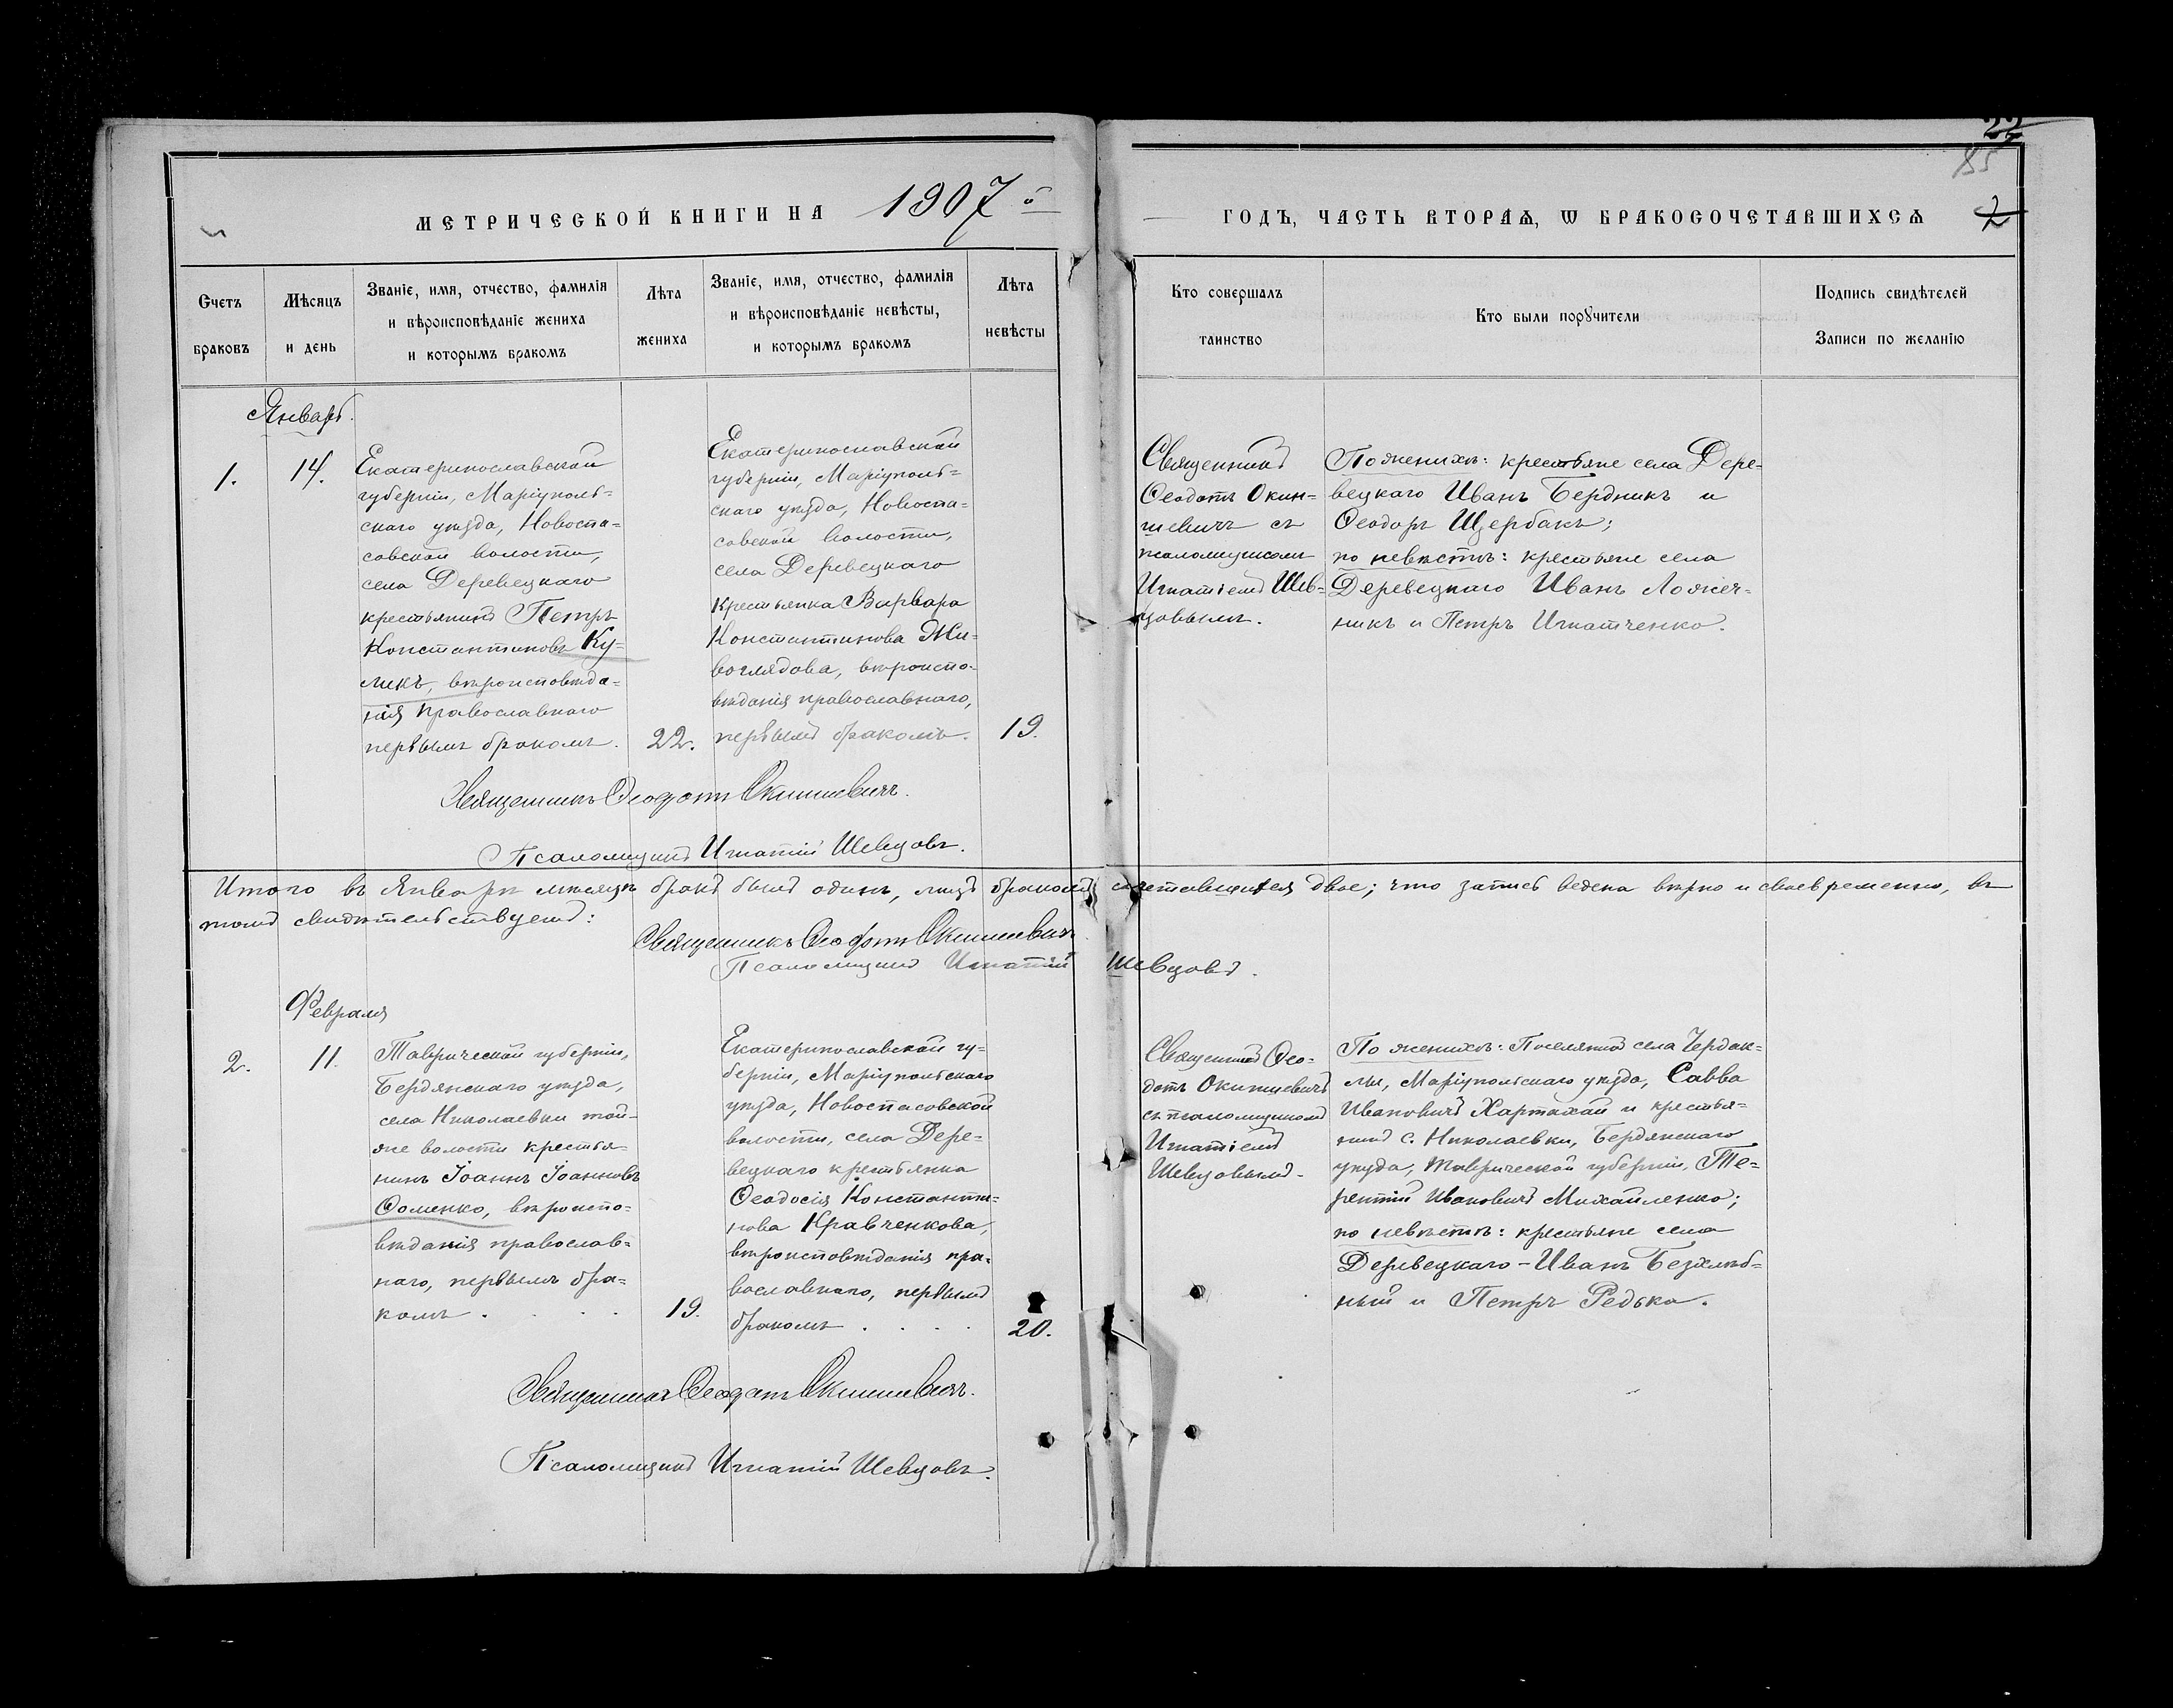 22
85
МЕТРИЧЕСКОЙ КНИГИ НА 1907й
ГОДЪ, ЧАСТЬ ВТОРАѦ, Ѡ БРАКОСОЧЕТАВШИХСѦ
2
Счетъ браковъ
Мѣсяцъ и день
Званіе, имя, отчество, фамилія
и вѣроисповѣданіе жениха
и которымъ бракомъ
Лѣта жениха
Званіе, имя, отчество, фамилія
и вѣроисповѣданіе невѣсты,
и которымъ бракомъ
Лѣта невѣсты
Кто совершалъ
таинство
Кто были порꙋчители
Подпись свидѣтелей
Записи по желанію
Январь.
1.
14.
Екатеринославской
губерніи, Маріуполь=
скаго уѣзда, Новоспа=
совской волости,
села Деревецкаго
крестьянинъ Петръ
Константиновъ Ку=
ликъ, вѣроисповѣда=
нія православнаго
первымъ бракомъ.
22.
Екатеринославской
губерніи, Маріуполь=
скаго уѣзда, Новоспа=
совской волости,
села Деревецкаго
крестьянка Варвара
Константинова Жи=
воглядова, вѣроиспо=
вѣданія православнаго,
первымъ бракомъ.
19.
Священникъ
Ѳеодотъ Окин=
шевичъ съ
псаломщикомъ
Игнатіемъ Шев=
цовымъ.
По женихѣ: крестьяне села Дере=
вецкаго Иванъ Бердникъ и
Ѳеодоръ Щербакъ;
по невѣстѣ: крестьяне села
Деревецкаго Иванъ Ложеч=
никъ и Петръ Игнатченко.
Священникъ Ѳеодотъ Окиншевичъ.
Псаломщикъ Игнатій Шевцовъ.
Итого въ Январѣ мѣсяцѣ бракъ былъ одинъ, лицъ бракомъ сочетавшихся двое; что запись ведена вѣрно и своевременно, въ
томъ свидѣтельствуемъ:
Священникъ Ѳеодотъ Окиншевичъ
Псаломщикъ Игнатій Шевцовъ.
Февраля
2.
11.
Таврической губерніи,
Бердянскаго уѣзда,
села Николаевки той-
же волости крестья=
нинъ Іоаннъ Іоанновъ
Ѳоменко, вѣроиспо=
вѣданія православ=
наго, первымъ бра=
комъ . . . .
19.
Екатеринославской гу=
берніи, Маріупольскаго
уѣзда, Новоспасовской
волости, села Дере=
вецкаго крестьянка
Ѳеодосія Константи=
нова Кравченкова,
вѣроисповѣданія пра=
вославнаго, первымъ
бракомъ . . . .
20.
Священникъ Ѳео=
дотъ Окиншевичъ
съ псаломщикомъ
Игнатіемъ
Шевцовымъ.
По женихѣ: Поселянинъ села Чердак=
лы, Маріупольскаго уѣзда, Савва
Ивановичъ Хартахай и крестья=
нинъ с. Николаевки, Бердянскаго
уѣзда, Таврической губерніи, Те=
рентій Ивановичъ Михайленко;
по невѣстѣ: крестьяне села
Деревецкаго - Иванъ Безхлѣб=
ный и Петръ Редька.
Священникъ Ѳеодотъ Окиншевичъ.
Псаломщикъ Игнатій Шевцовъ.